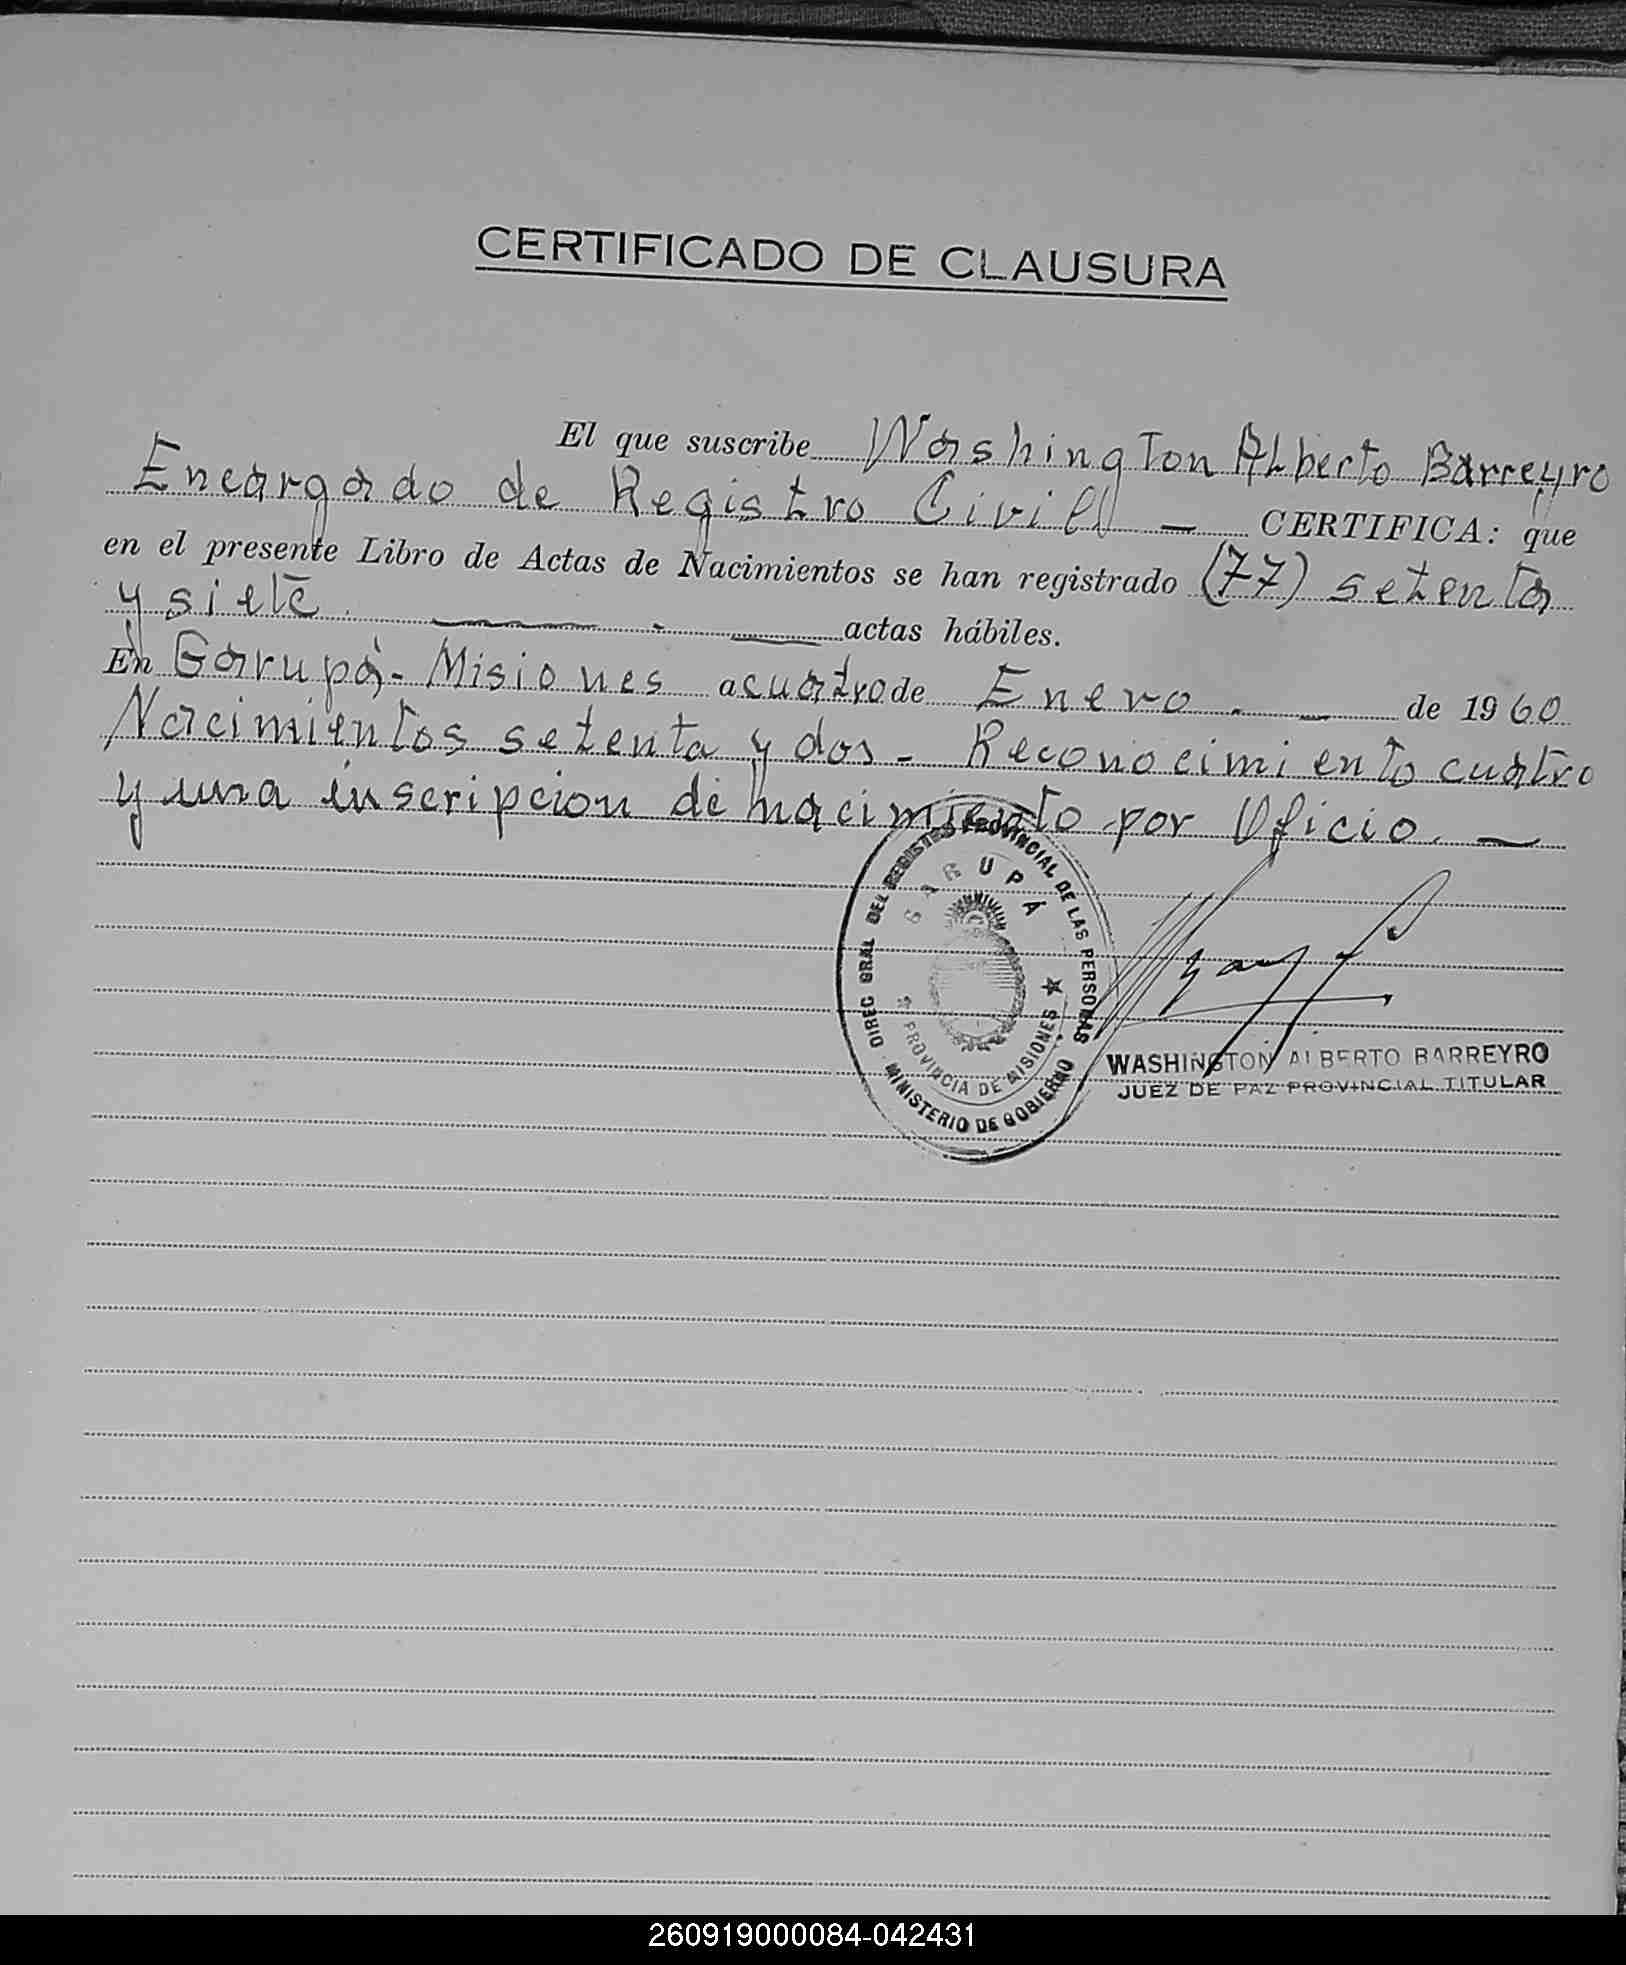 CERTIFICADO DE CLAUSURA
El que suscribe Washington Alberto Barreyro
Encargado de Registro Civil — CERTIFICA: que
en el presente Libro de Actas de Nacimientos se han registrado (77) setenta
y siete actas hábiles.
En Garupá - Misiones a cuatro de Enero - de 1960
Nacimientos setenta y dos - Reconocimiento cuatro
y una inscripcion de nacimiento por Oficio. —
DIREC GRAL DEL REGISTRO PROVINCIAL DE LAS PERSONAS
GARUPÁ
PROVINCIA DE MISIONES
MINISTERIO DE GOBIERNO
WASHINGTON ALBERTO BARREYRO
JUEZ DE PAZ PROVINCIAL TITULAR
260919000084-042431